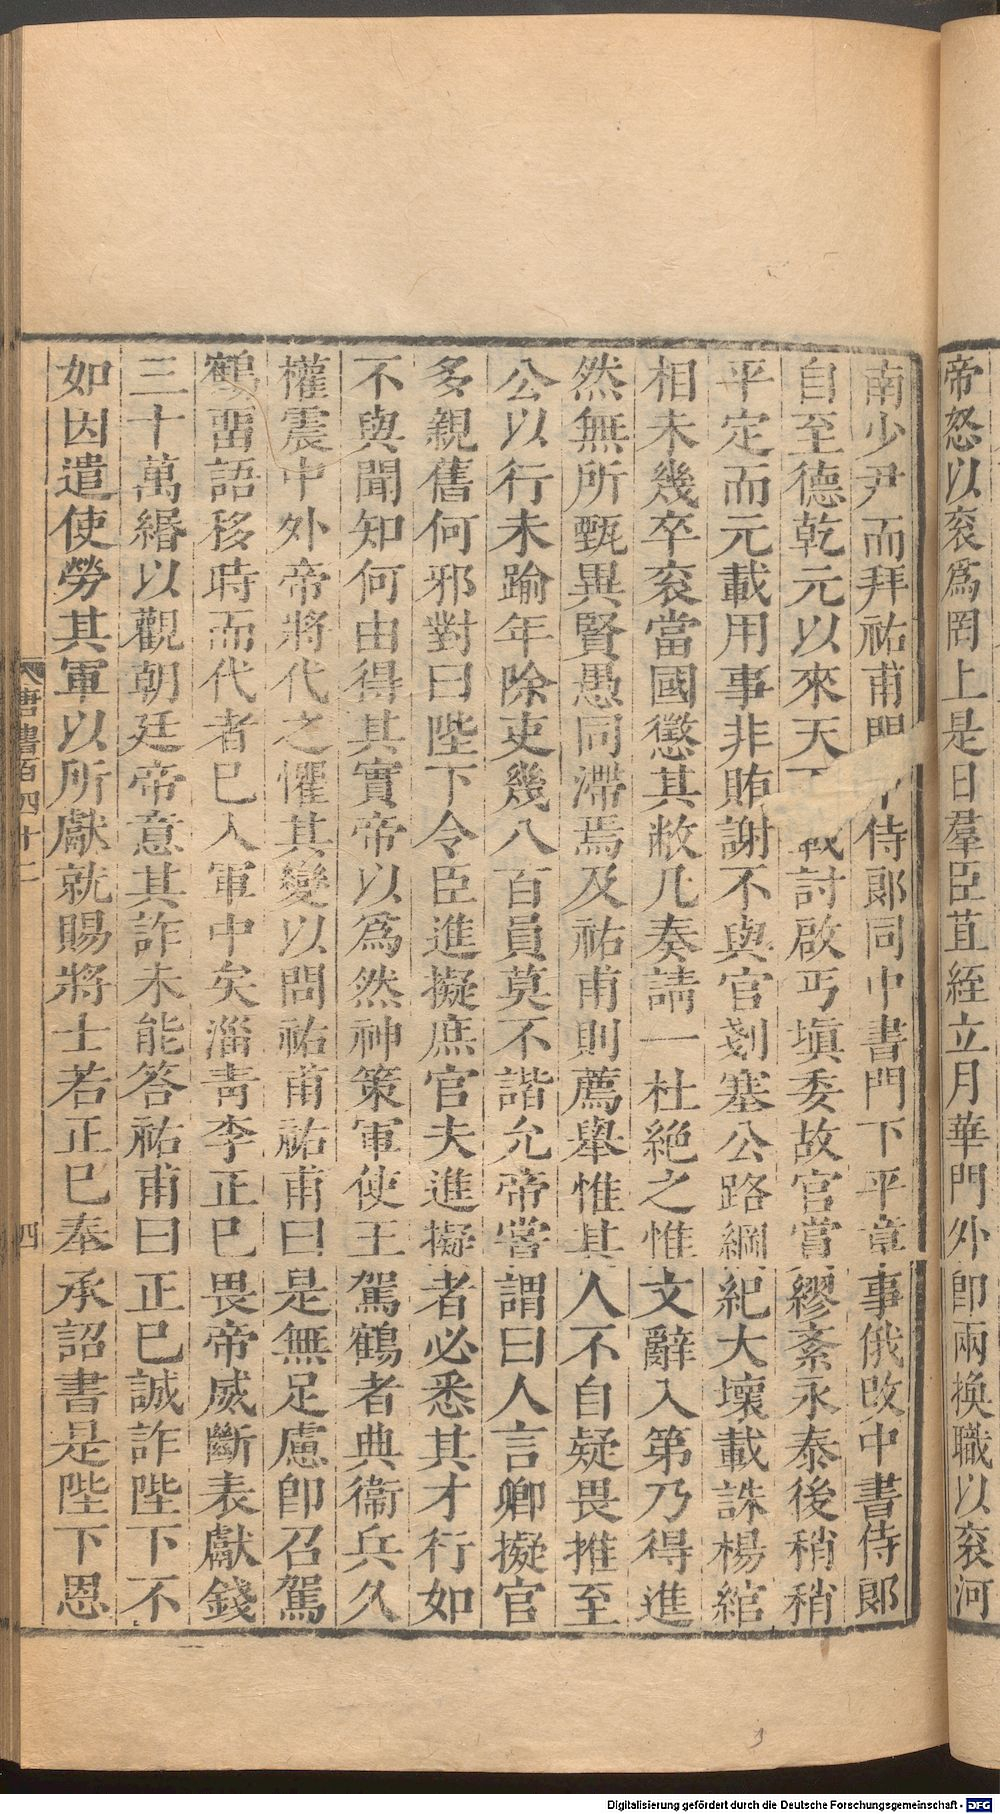 帝怒以袞爲罔上是日羣臣苴絰立月華門外卽兩換職以袞河
南少尹而拜祐甫門下侍郞同中書門下平章事俄改中書侍郞
自至德乾元以來天下戰討啟丐塡委故官賞繆紊永泰後稍稍
平定而元載用事非賄謝不與官剗塞公路綱紀大壞載誅楊綰
相未幾卒袞當國懲其敝凡奏請一杜絕之惟文辭入第乃得進
然無所甄異賢愚同滯焉及祐甫則薦舉惟其人不自疑畏推至
公以行未踰年除吏幾八百員莫不諧允帝嘗謂曰人言卿擬官
多親舊何邪對曰陛下令臣進擬庶官夫進擬者必悉其才行如
不與聞知何由得其實帝以爲然神策軍使王駕鶴者典衞兵久
權震中外帝將代之懼其變以問祐甫祐甫曰是無足慮卽召駕
鶴畱語移時而代者已入軍中矣淄靑李正已畏帝威斷表獻錢
三十萬緡以觀朝廷帝意其詐未能答祐甫曰正已誠詐陛下不
如因遣使勞其軍以所獻就賜將士若正已奉承詔書是陛下恩
唐書百四十二
四
Digitalisierung gefördert durch die Deutsche Forschungsgemeinschaft - DFG